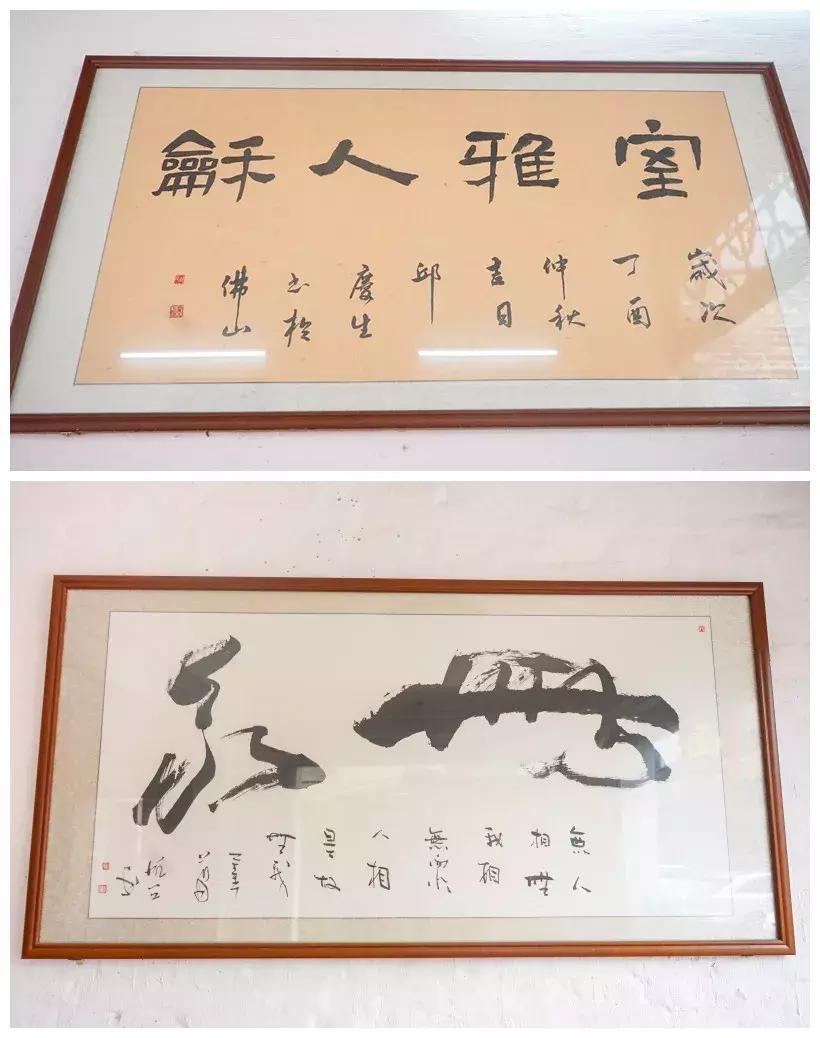 室雅人龢
歲次
丁酉
仲秋
吉日
邱
慶生
书於
佛山
無我
無人
相無
我相
無
人相
是故
無我